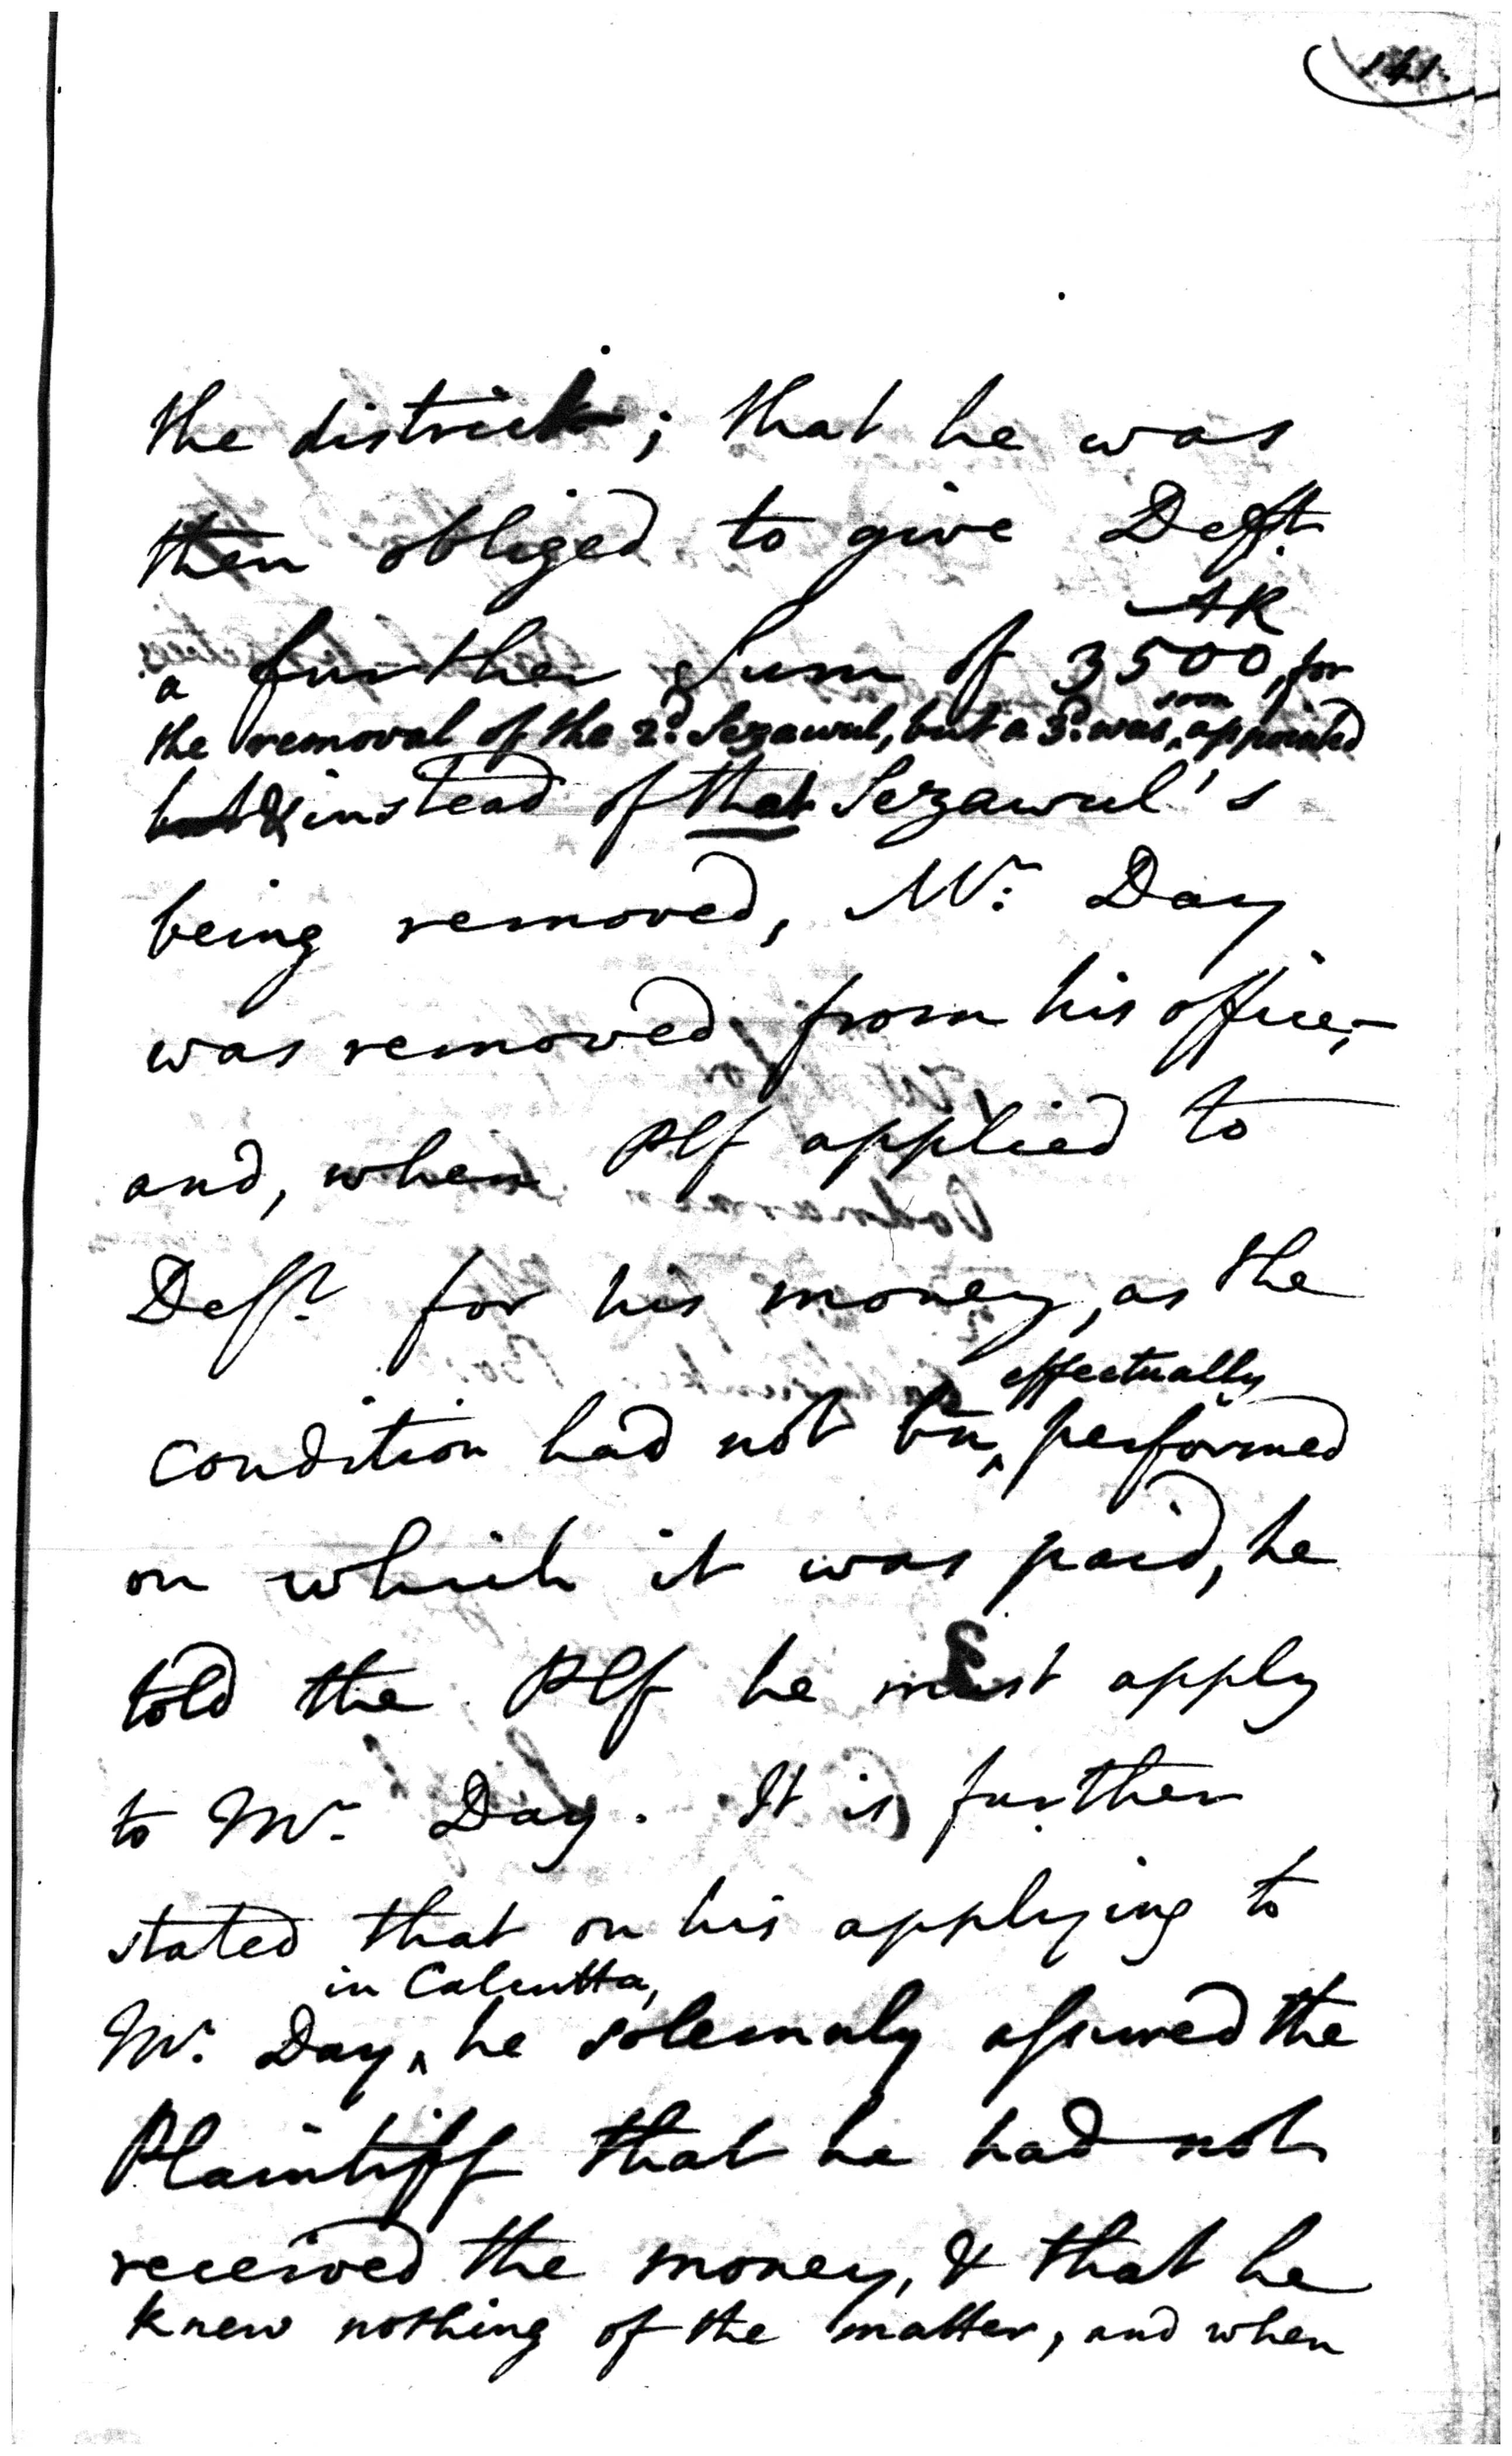 141.
the district; that he was
then obliged to give Deft.
AR
a further Sum of 3500, for
the removal of the 2d. Sezawul, but a 3d. was soon appointed
but & instead of that Sezawul's
being removed, Mr. Day
was removed from his office,
and, when Plf applied to
Deft. for his money, as the
effectually
condition had not bn performed
on which it was paid, he
told the Plf he must apply
to Mr. Day. It is further
stated that on his applying to
in Calcutta,
Mr. Day, he solemnly assured the
Plaintiff that he had not
received the money, & that he
knew nothing of the matter, and when